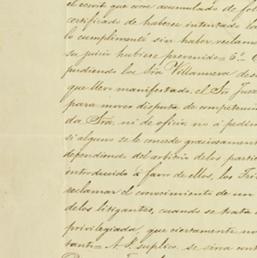 el escrito que corre acumulado de fo
certificado de haberse intentado la
lo cumplimenté sin haber reclama
su juicio hubiese prevenido 
pudiendo los Sres Villanueva des
que llevo manifestado, el Sor Jua
para mover disputa de competencia
da Sra, ni de oficio nó á pedim
si alguno se le concede graciosament
dependiendo del arbitrio de los parti
introducido á favor de ellos, los Tri
reclamar el conocimiento de un
de los litigantes, cuando se trata
privilegiada, que ciertamente no
tanto A V. suplico se sirva